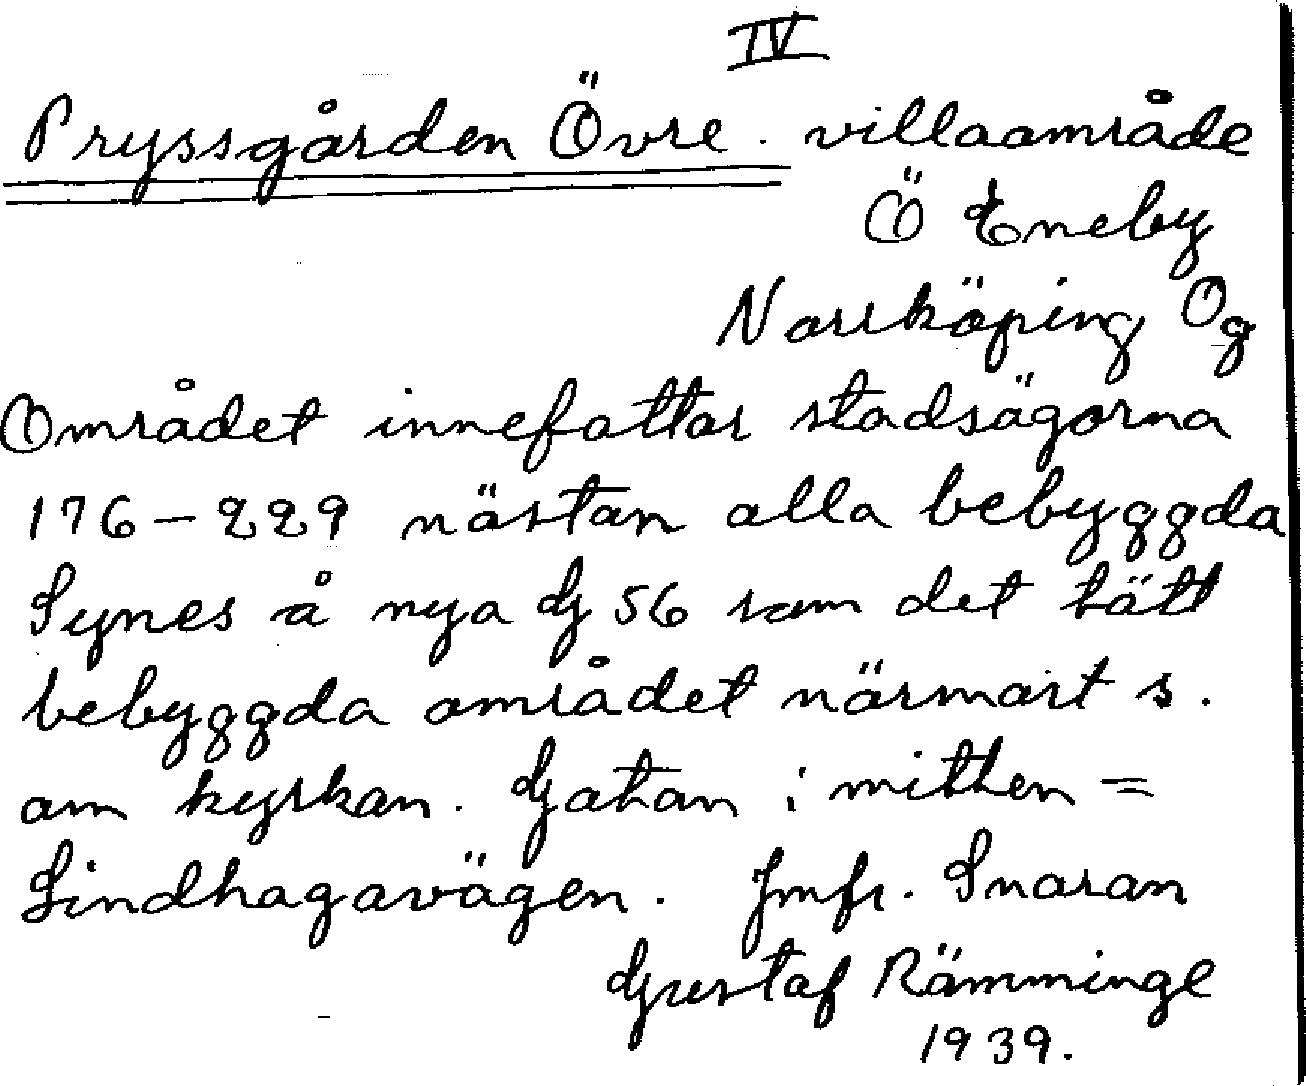 IV
Pryssgården Övre. villaområde
Ö Eneby
Norrköping Ög
Området innefattar stadsägorna
176-229 nästan alla bebyggda
Synes å nya G 56 som det tätt
bebyggda området närmast s.
om kyrkan. Gatan i mitten =
Lindhagavägen. Jmfr. Snaran
Gustaf Rämminge
1939.